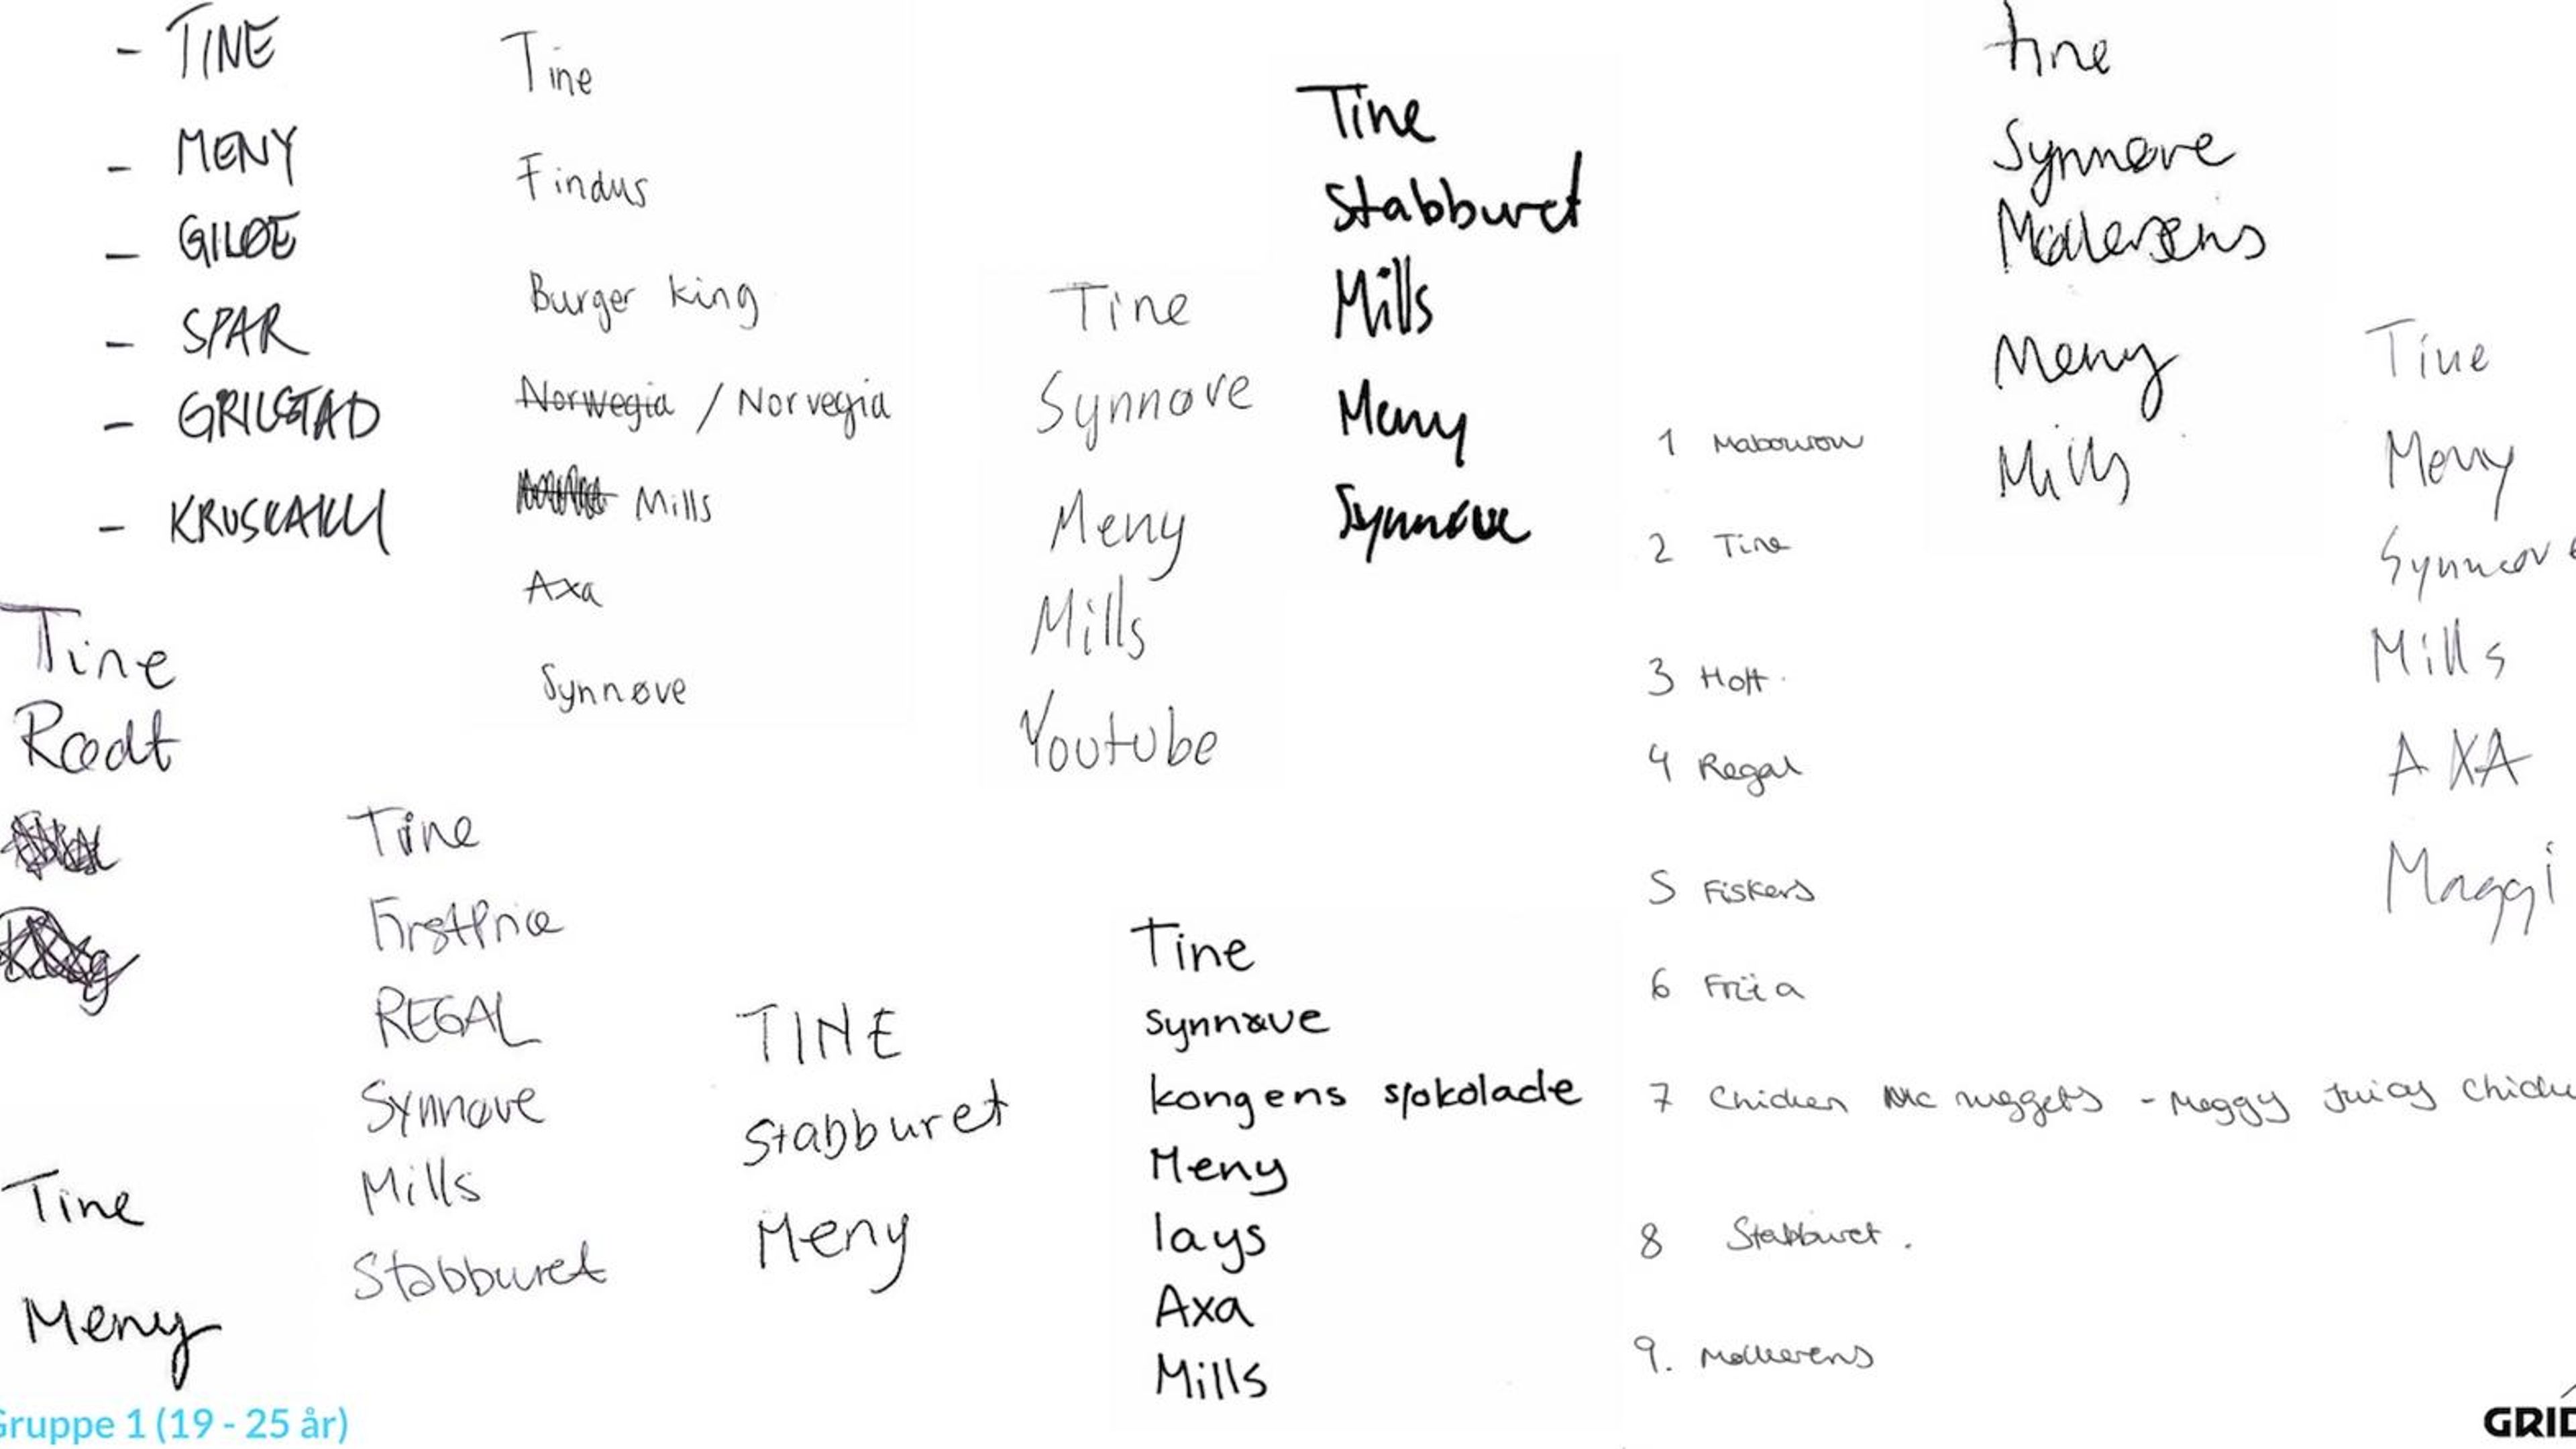 - TINE
- MENY
- GILDE
- SPAR
- GRILSTAD
- KRUSKAKLI
Tine
Findus
Burger king
Norwegia / Norvegia
Mills
Axa
Synnøve
Tine
Synnøve
Meny
Mills
Youtube
Tine
Stabburet
Mills
Meny
Synnøve
tine
Synnøve
Møllerens
Meny
Mills
Tine
Meny
Synnøve
Mills
AXA
Maggi
1
2 Tine
3 Hoff.
4 Regal
5 Fiskers
6 Friia
7 Chicken Mc nuggets - Meggy Juicy Chicke
8 Stabburet.
9. Møllerens
Tine
Rødt
Tine
Meny
Tine
FirstPrice
REGAL
Synnøve
Mills
Stabburet
TINE
Stabburet
Meny
Tine
Synnøve
kongens sjokolade
Meny
lays
Axa
Mills
Gruppe 1 (19 - 25 år)
GRID